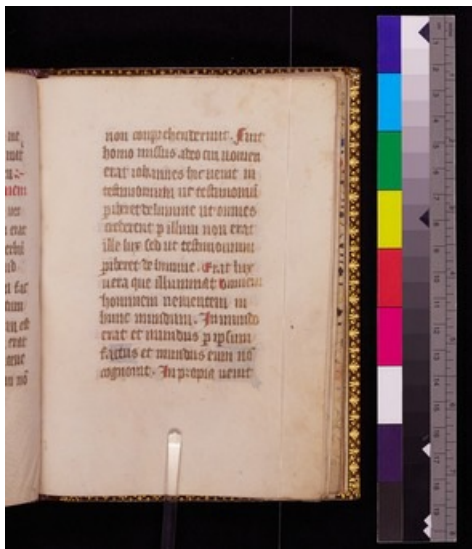 non comprehenderunt. Fuit
homo missus a deo cui nomen
erat iohannes hic venit in
testimonium ut testimoniu
phiberet de lumine ut omnes
crederent p illum non erat
ille lux sed ut testimonium
phiberet de lumine. Erat lux
vera que illuminat omnem
hominem venientem in
hunc mundum. In mundo
erat et mundus p ipsum
factus et mundus eum no
cognovit. In propria venit